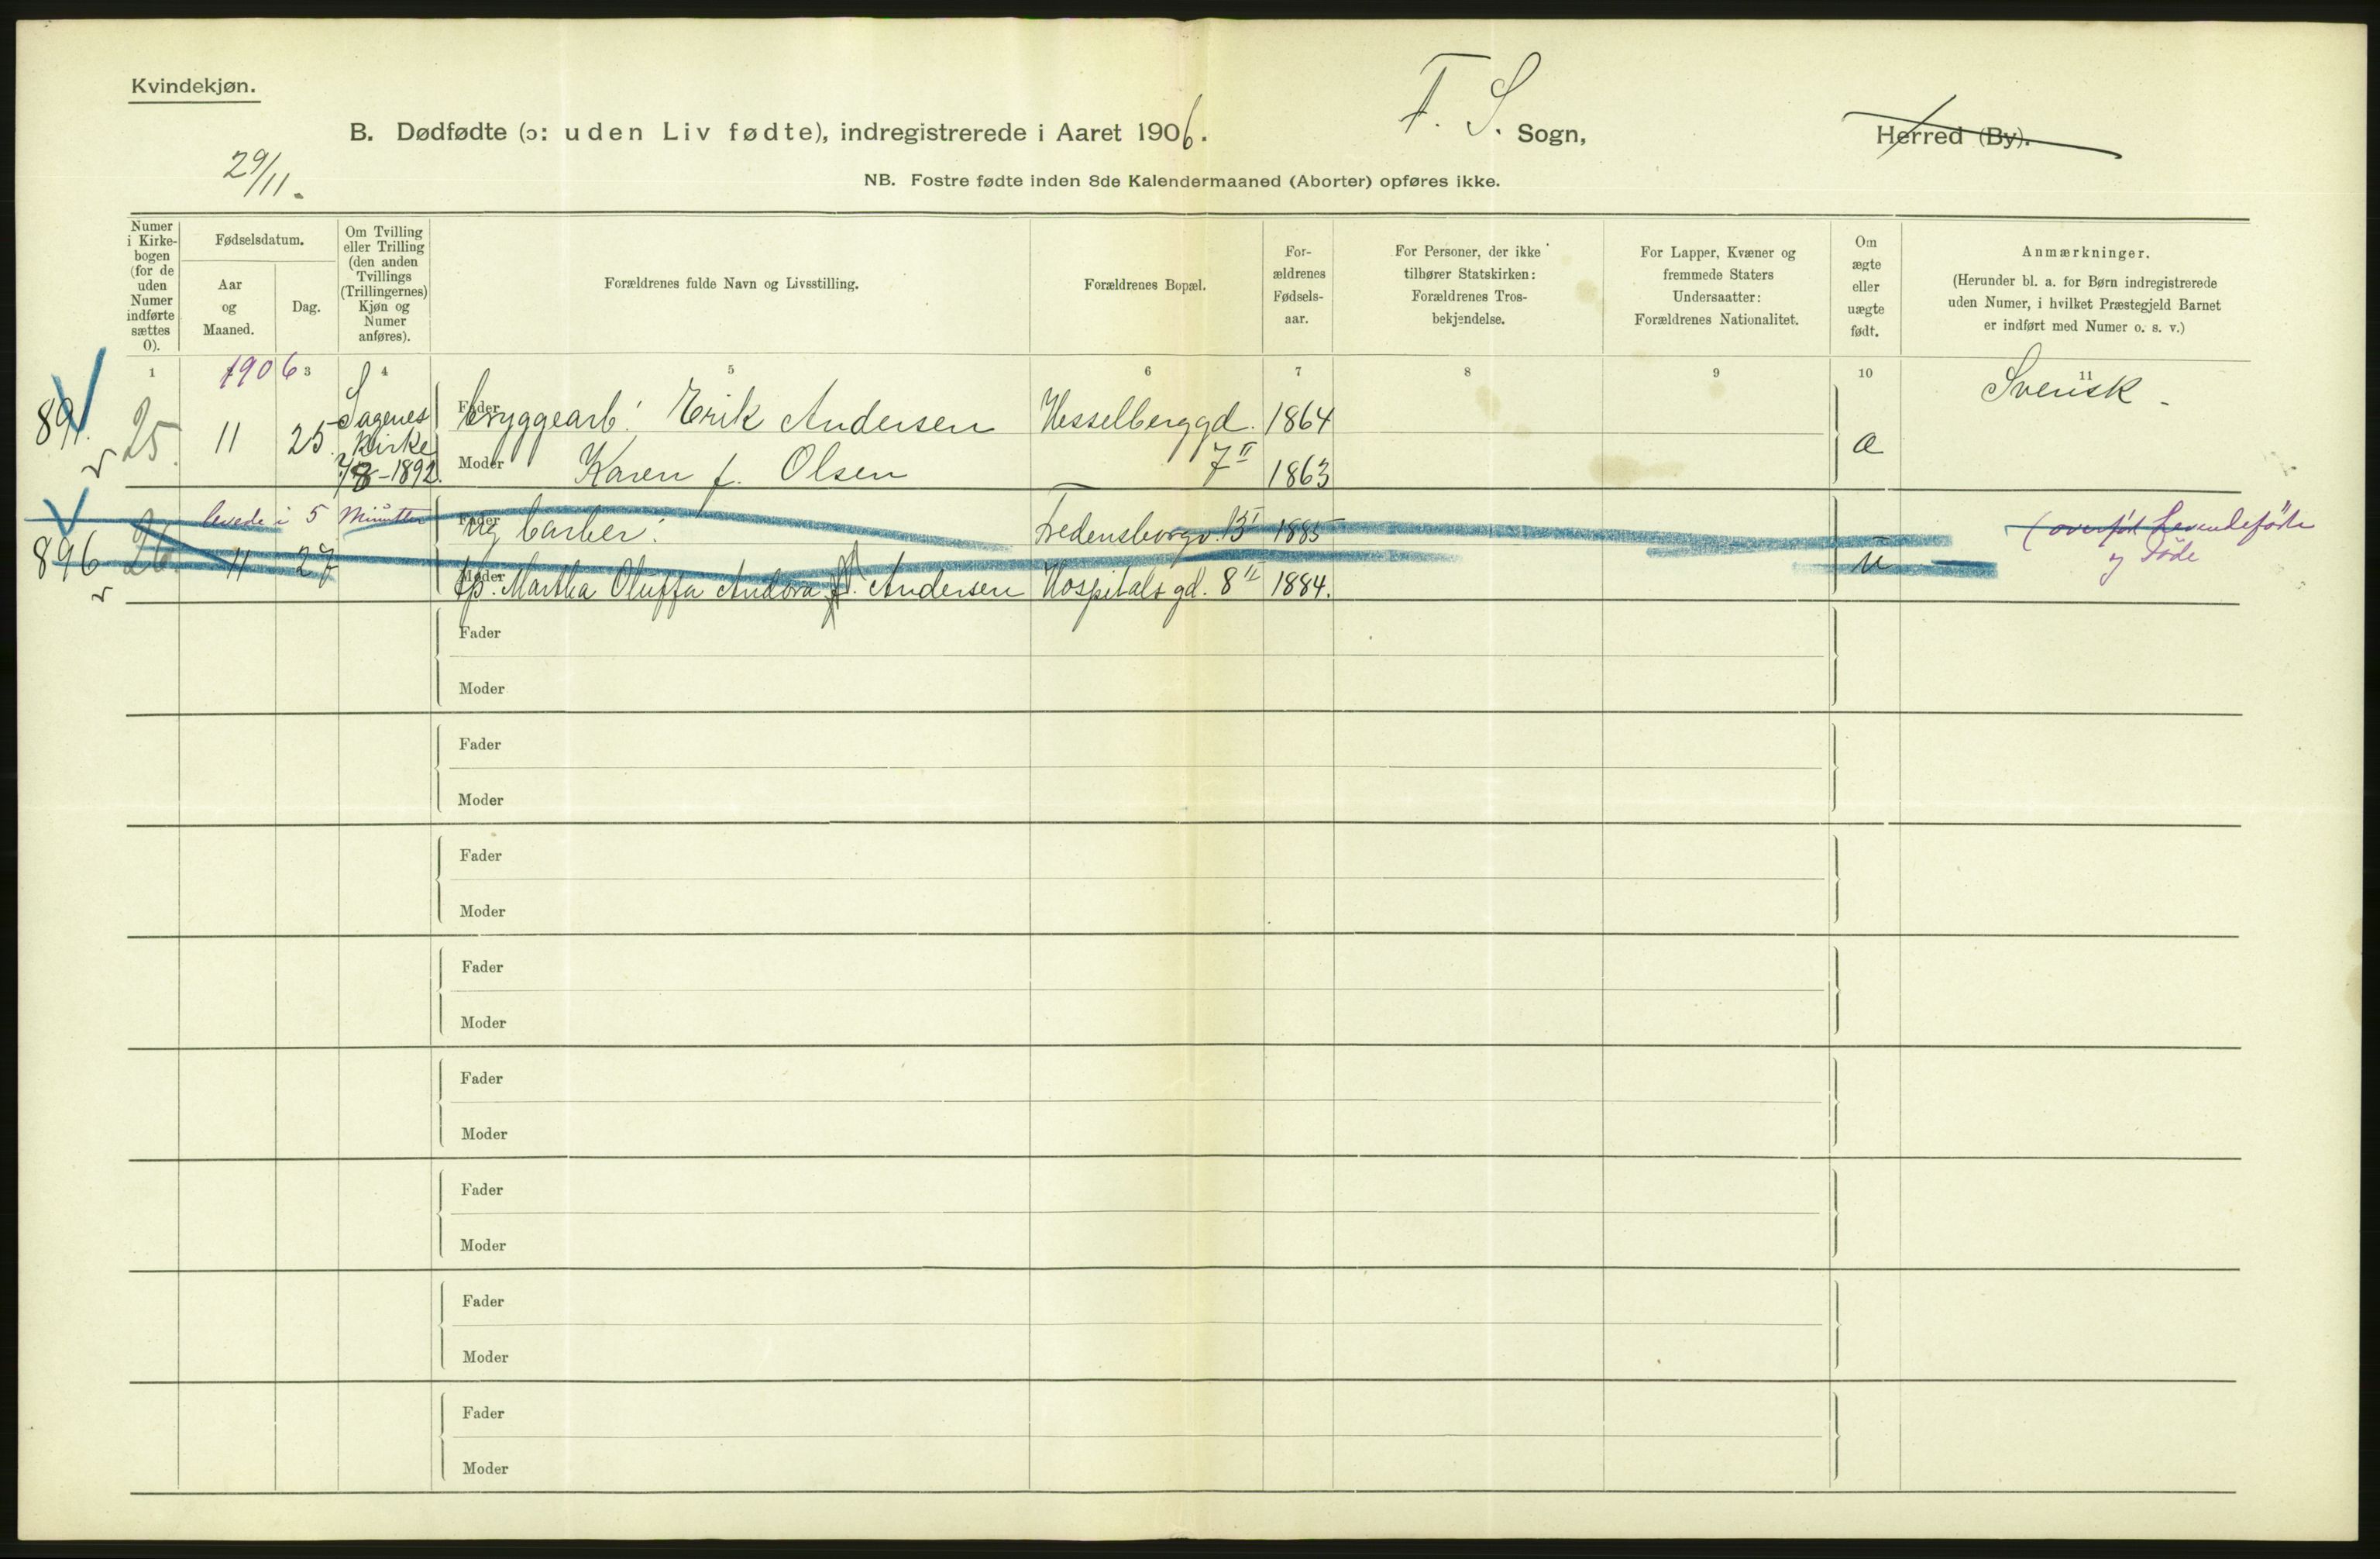 Kvindekjøn.
B. Dødfødte (ɔ: uden Liv fødte), indregistrerede i Aaret 1906.
F. S. Sogn,
Herred (By).
29/11.
NB. Fostre fødte inden 8de Kalendermaaned (Aborter) opføres ikke.
Numer i Kirke-bogen (for de uden Numer indførte sættes 0).
Fødselsdatum.
Aar og Maaned.
Dag.
Om Tvilling eller Trilling (den anden Tvillings (Trillingernes) Kjøn og Numer anføres).
Forældrenes fulde Navn og Livsstilling.
Forældrenes Bopæl.
For-ældrenes Fødsels-aar.
For Personer, der ikke tilhører Statskirken: Forældrenes Tros-bekjendelse.
For Lapper, Kvæner og fremmede Staters Undersaatter: Forældrenes Nationalitet.
Om ægte eller uægte født.
Anmærkninger.
(Herunder bl. a. for Børn indregistrerede uden Numer, i hvilket Præstegjeld Barnet er indført med Numer o. s. v.)
1 1906 3 4 5 6 7 8 9 10 11
891. 25. 11 25. Sagenes Kirke 7/8-1892.
Fader bryggearb. Erik Andersen Hesselberggd. 1864
Moder Karen f. Olsen 7 II 1863
æ
Svensk -
levede i 5 Minutter
896 26. 11 27
Fader Ug barber. Fredensborgv. 13 I 1885
Moder Martha Oluffa Andersen Hospitalsgd. 8 II 1884.
u
(overført Levendefødte
og Døde
Fader
Moder
Fader
Moder
Fader
Moder
Fader
Moder
Fader
Moder
Fader
Moder
Fader
Moder
Fader
Moder